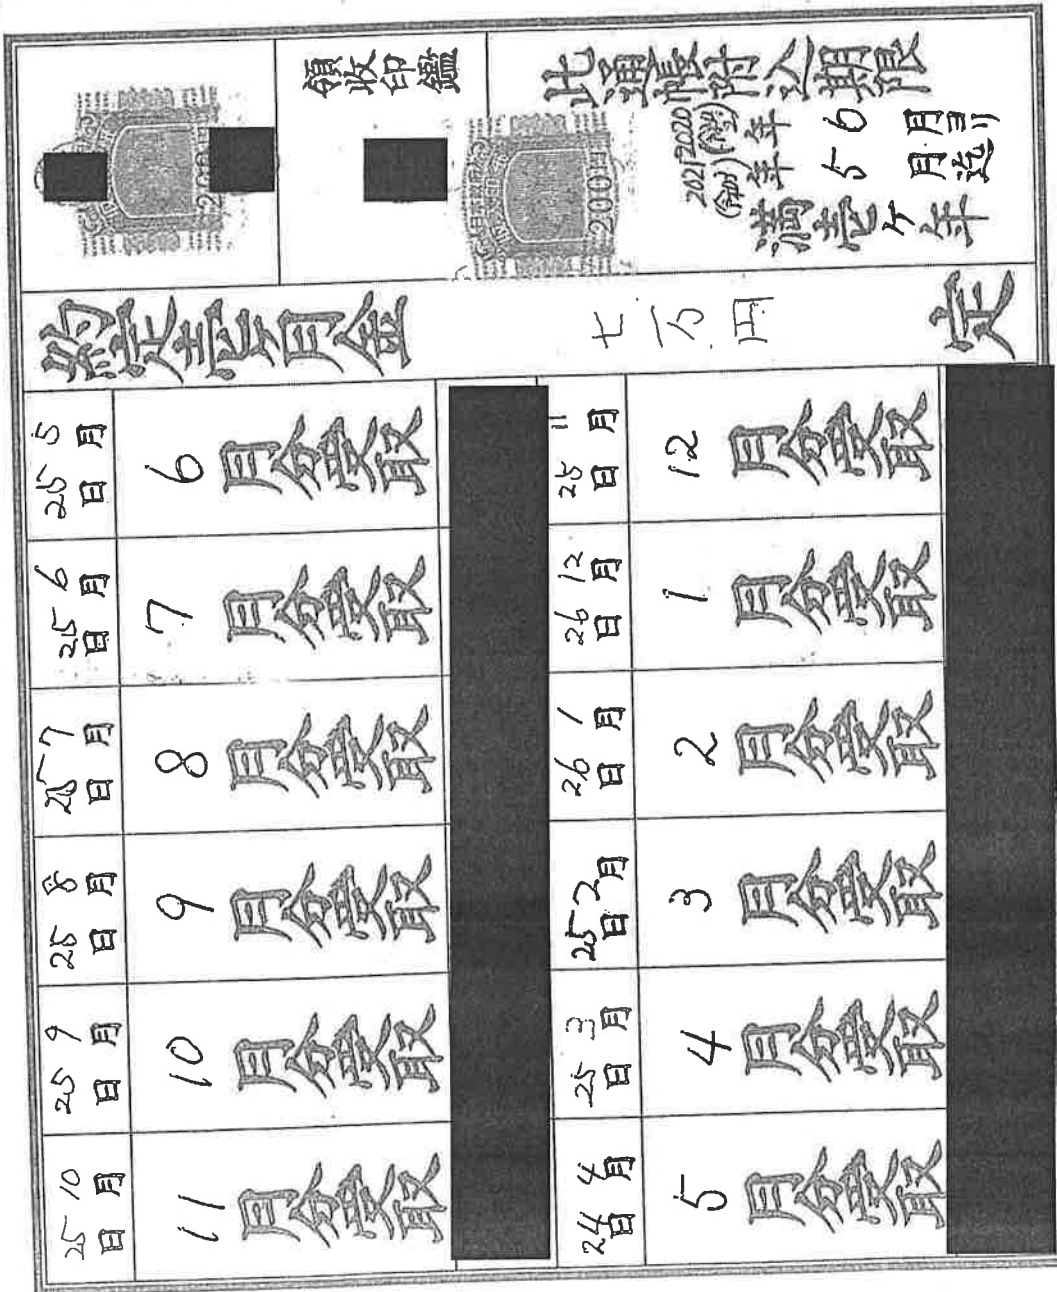 此通帳附込期限
2020(令2)年6月ヨリ
2021(令3)年5月迄
満壱ヶ年
領収印鑑
200円
約定壱ヶ月金 七万円 定
5月25日 6月分受取
6月25日 7月分受取
7月25日 8月分受取
8月25日 9月分受取
9月25日 10月分受取
10月25日 11月分受取
11月25日 12月分受取
12月26日 1月分受取
1月26日 2月分受取
2月25日 3月分受取
3月25日 4月分受取
4月24日 5月分受取